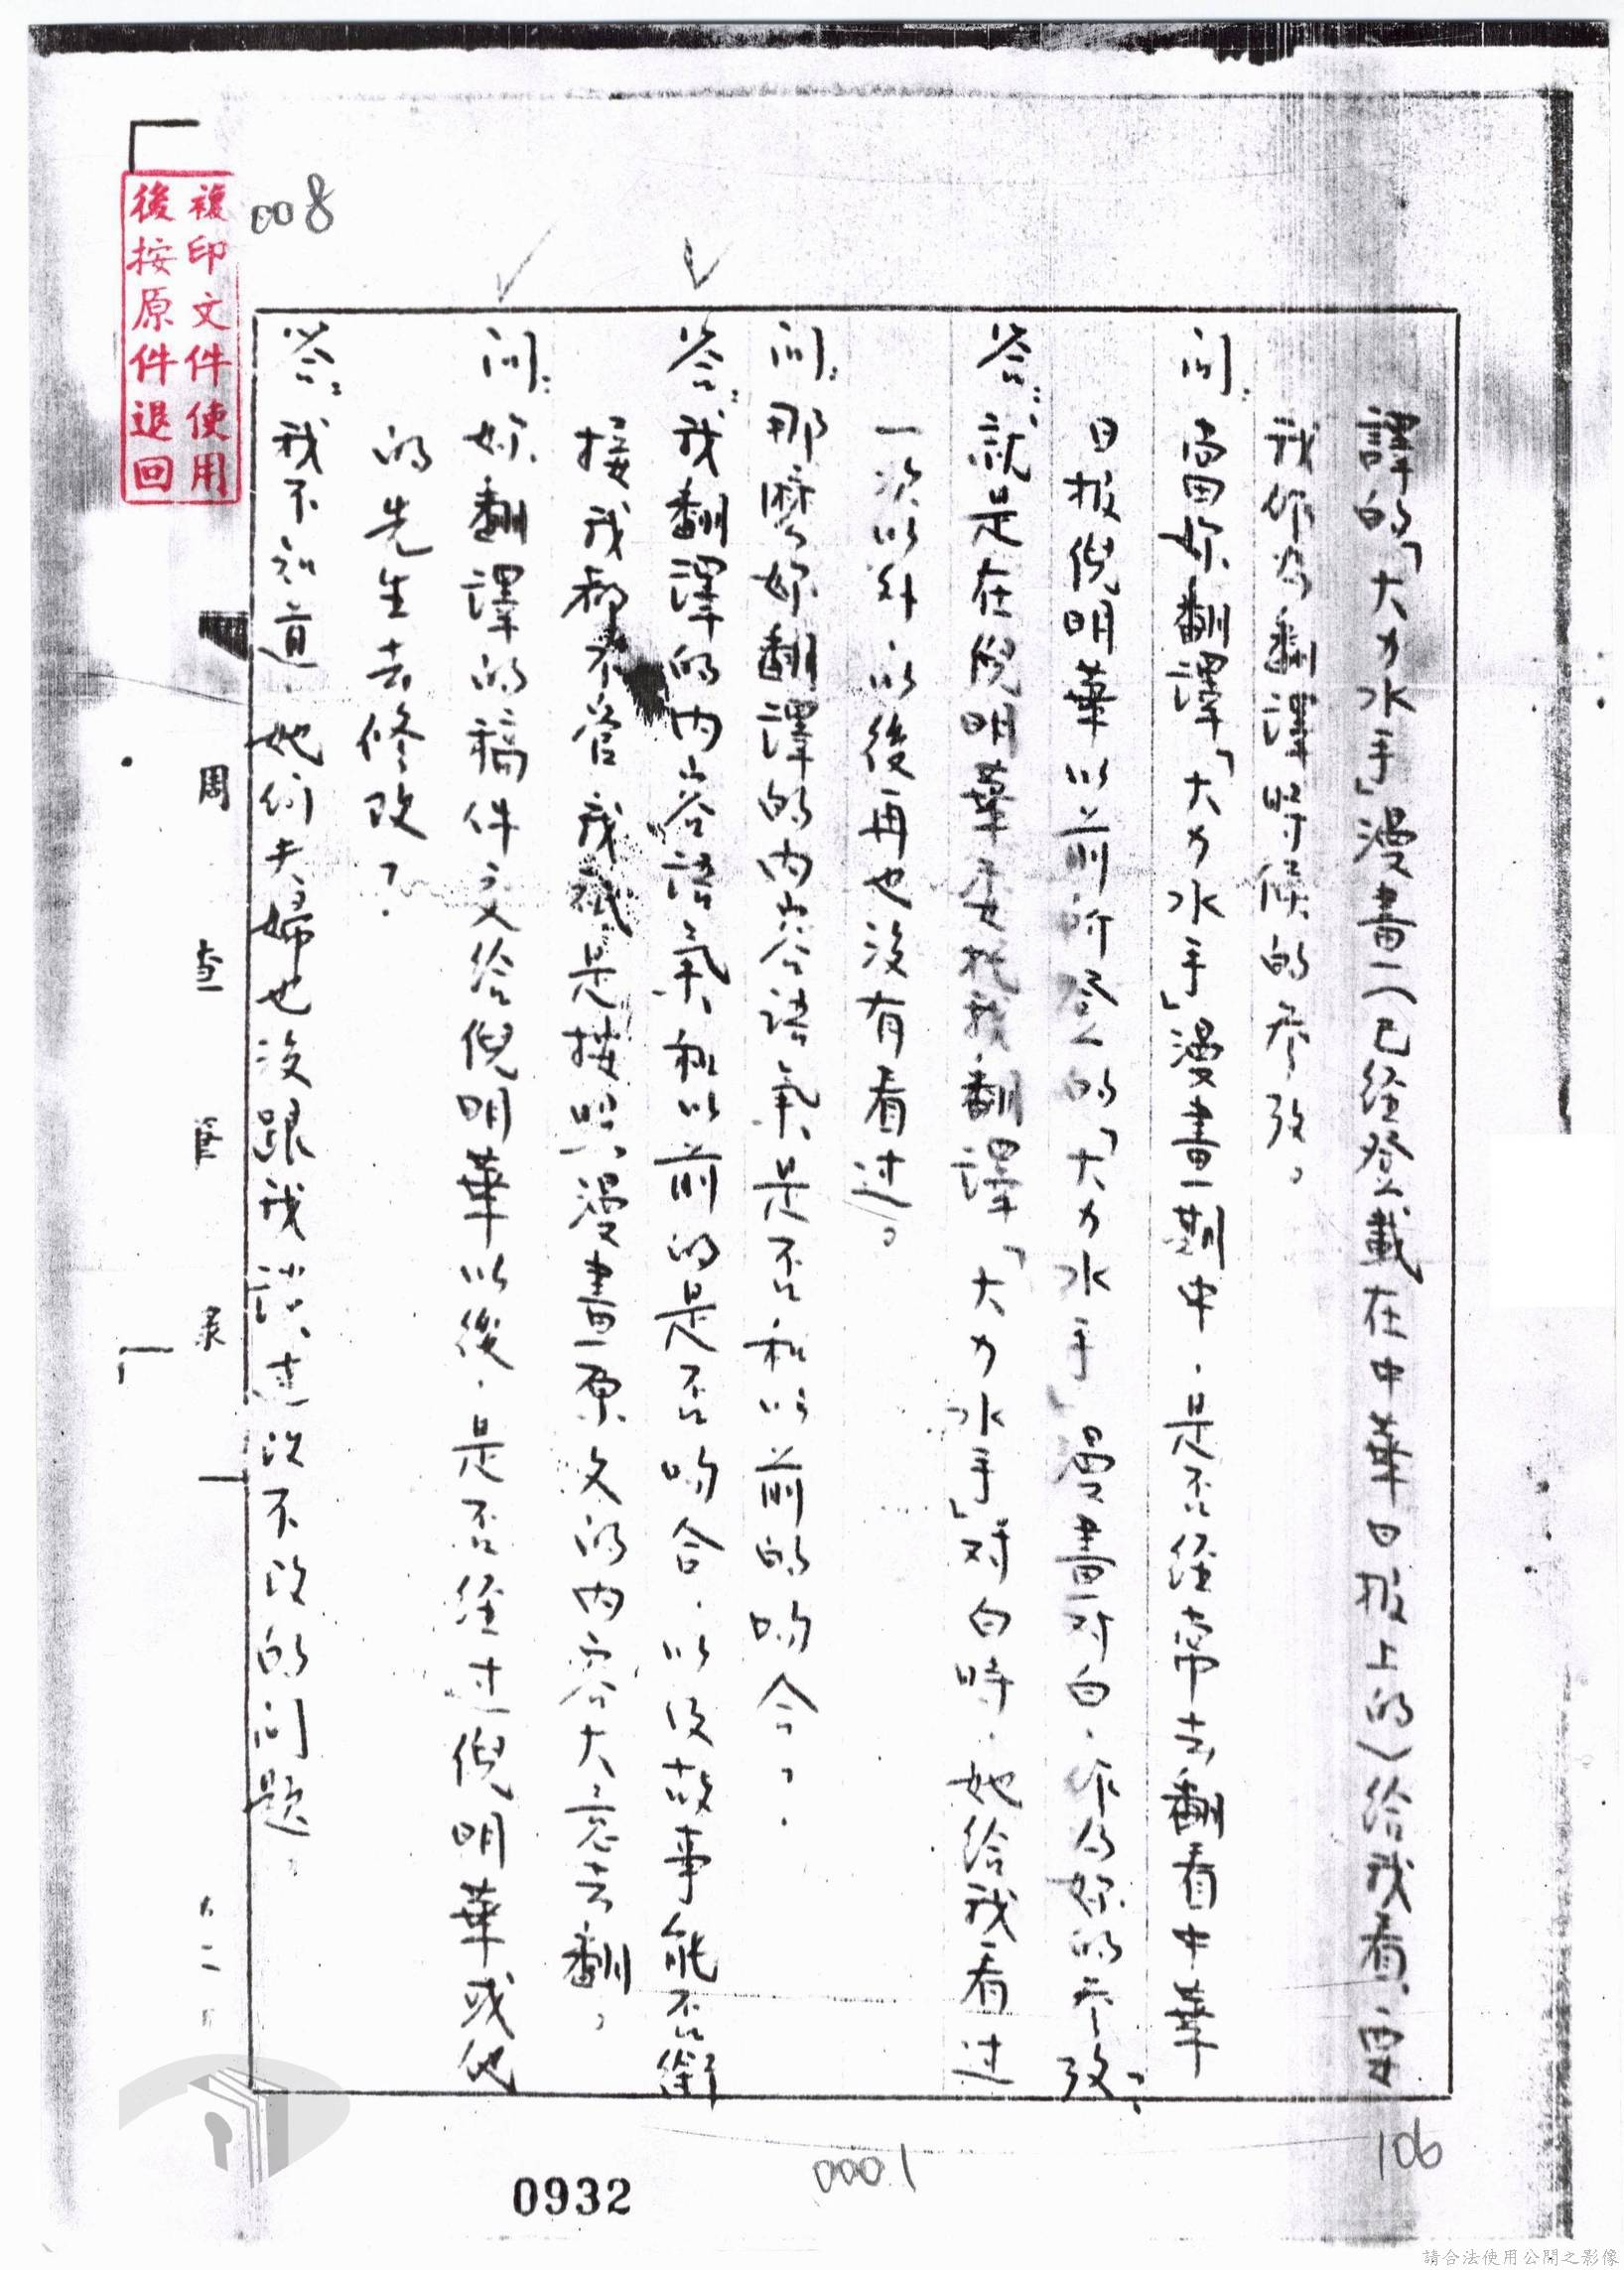 譯的「大力水手」漫畫(已經登載在中華日报上的)给我看,要
我作為翻譯時候的参攷。
问:當妳翻譯「大力水手」漫畫期中,是否经常去翻看中華
日报倪明華以前所登的「大力水手」漫畫对白,作為妳的参攷?
答:就是在倪明華委托我翻譯「大力水手」对白時,她给我看过
一次以外,以後再也沒有看过。
问:那麽妳翻譯的内容語氣是否和以前的吻合?
答:我翻譯的内容語氣和以前的是否吻合,以及故事能否銜
接我都不管,我祇是按照漫畫原文的内容大意去翻。
问:妳翻譯的稿件交给倪明華以後,是否经过倪明華或他
的先生去修改?
答:我不知道,她们夫婦也沒跟我談过改不改的问题。
複印文件使用
後按原件退回
008
106
0001
0932
請合法使用公開之影像